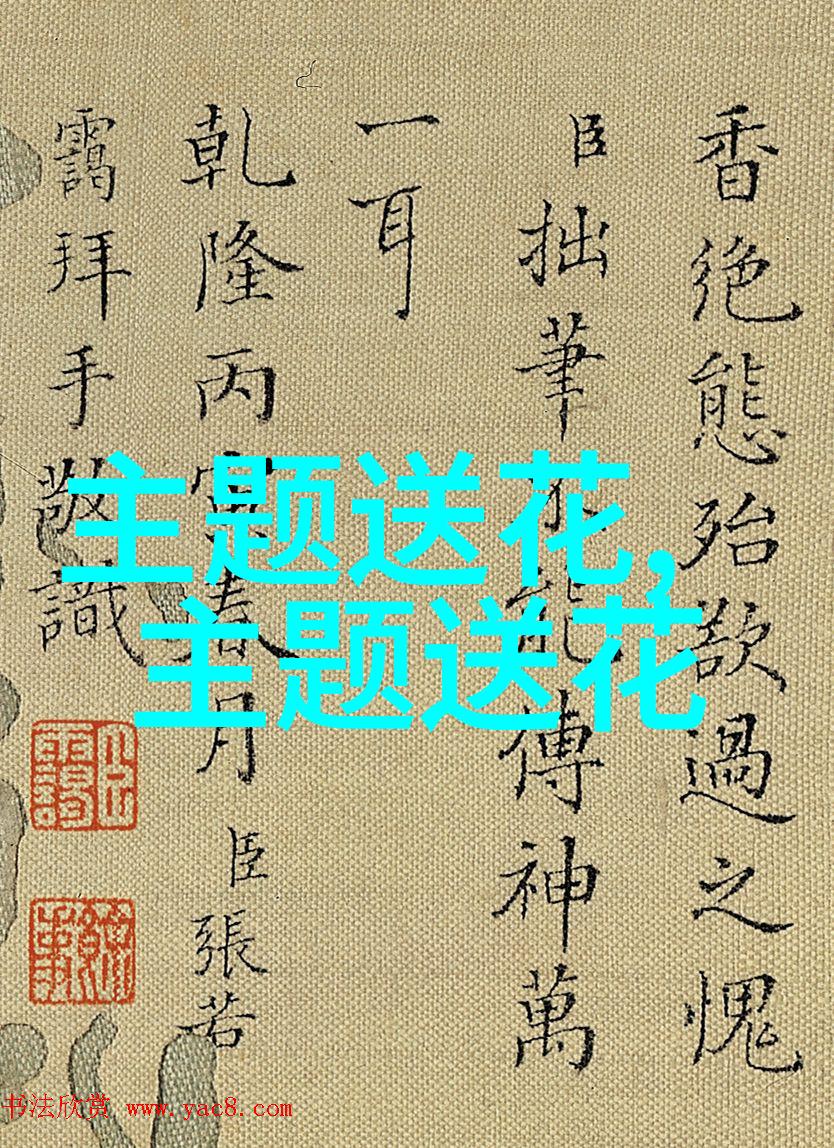 香絶態殆欲過之愧
臣拙筆不能傳神萬
一耳
乾隆丙寅春月臣張若
靄拜手敬識
主题送花,
主题送花
书法欣赏 www.yac8.com